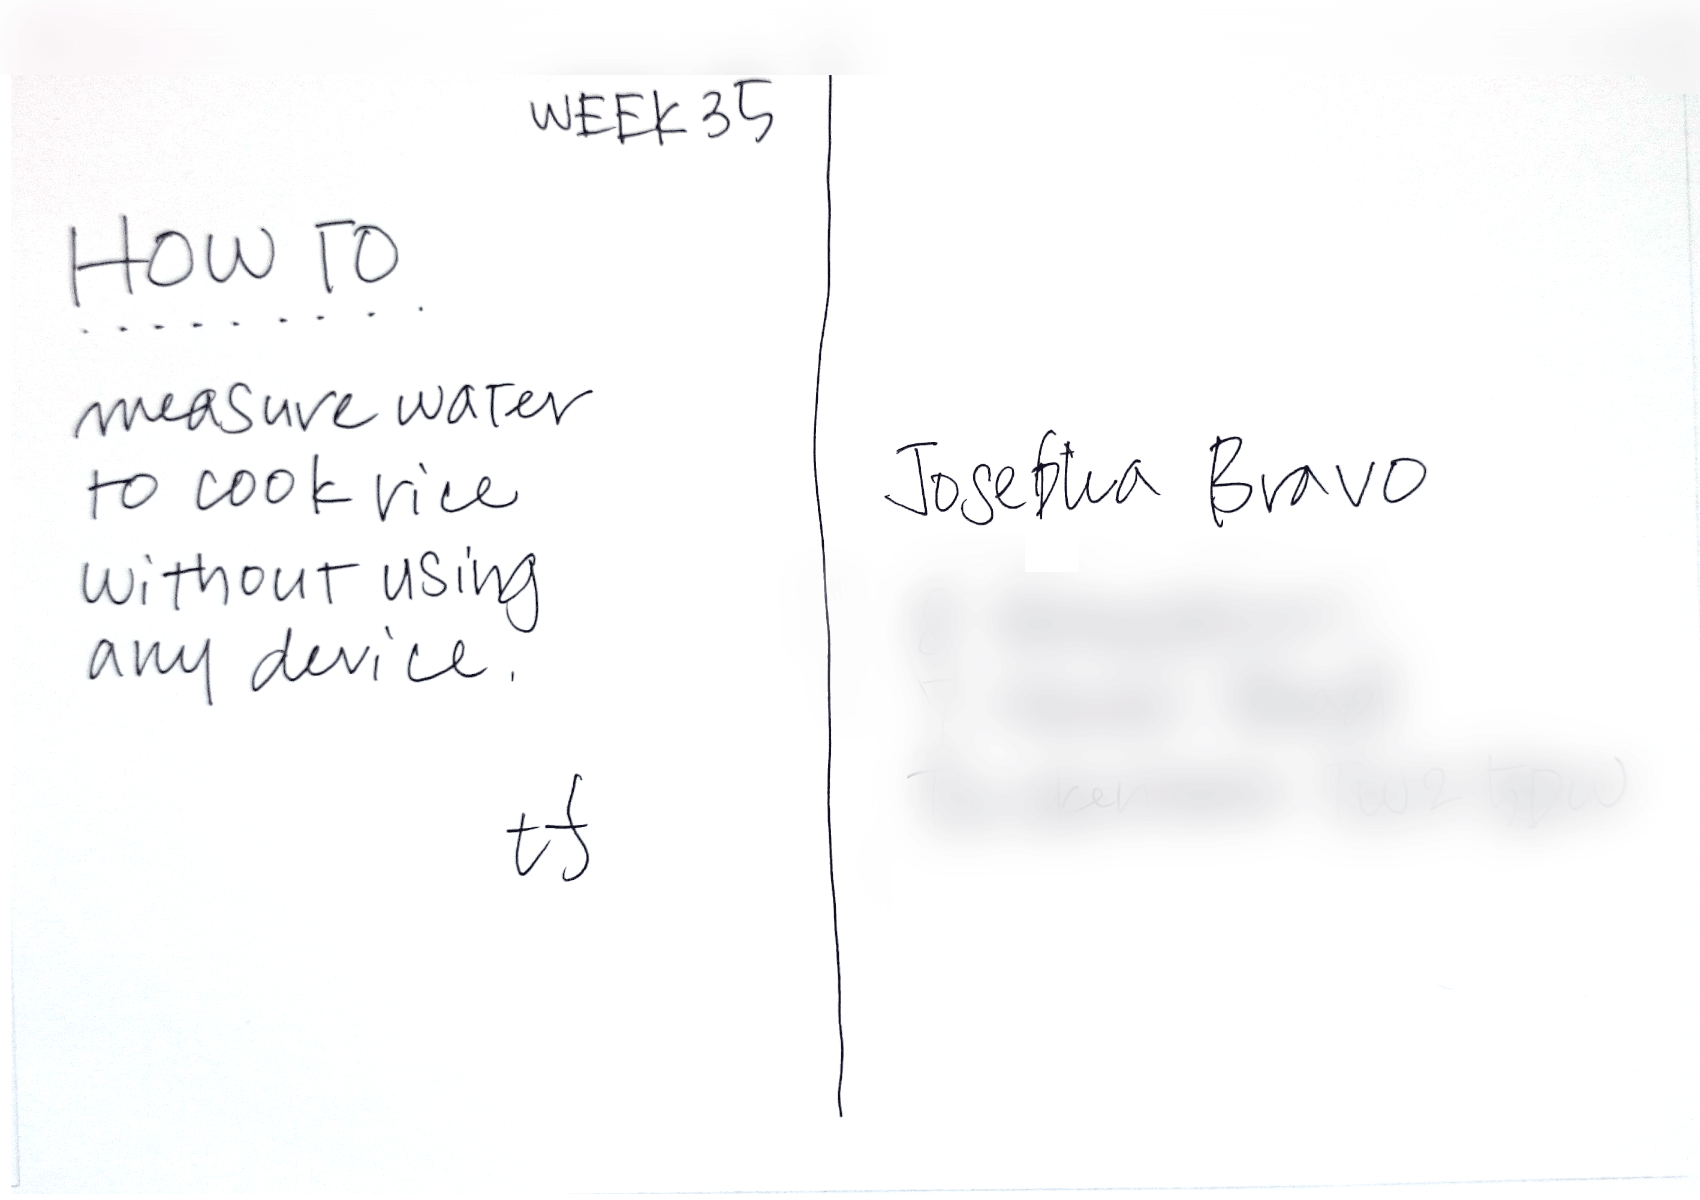 WEEK 35
HOW TO
measure water
to cook rice
without using
any device.
tf
Josefina Bravo